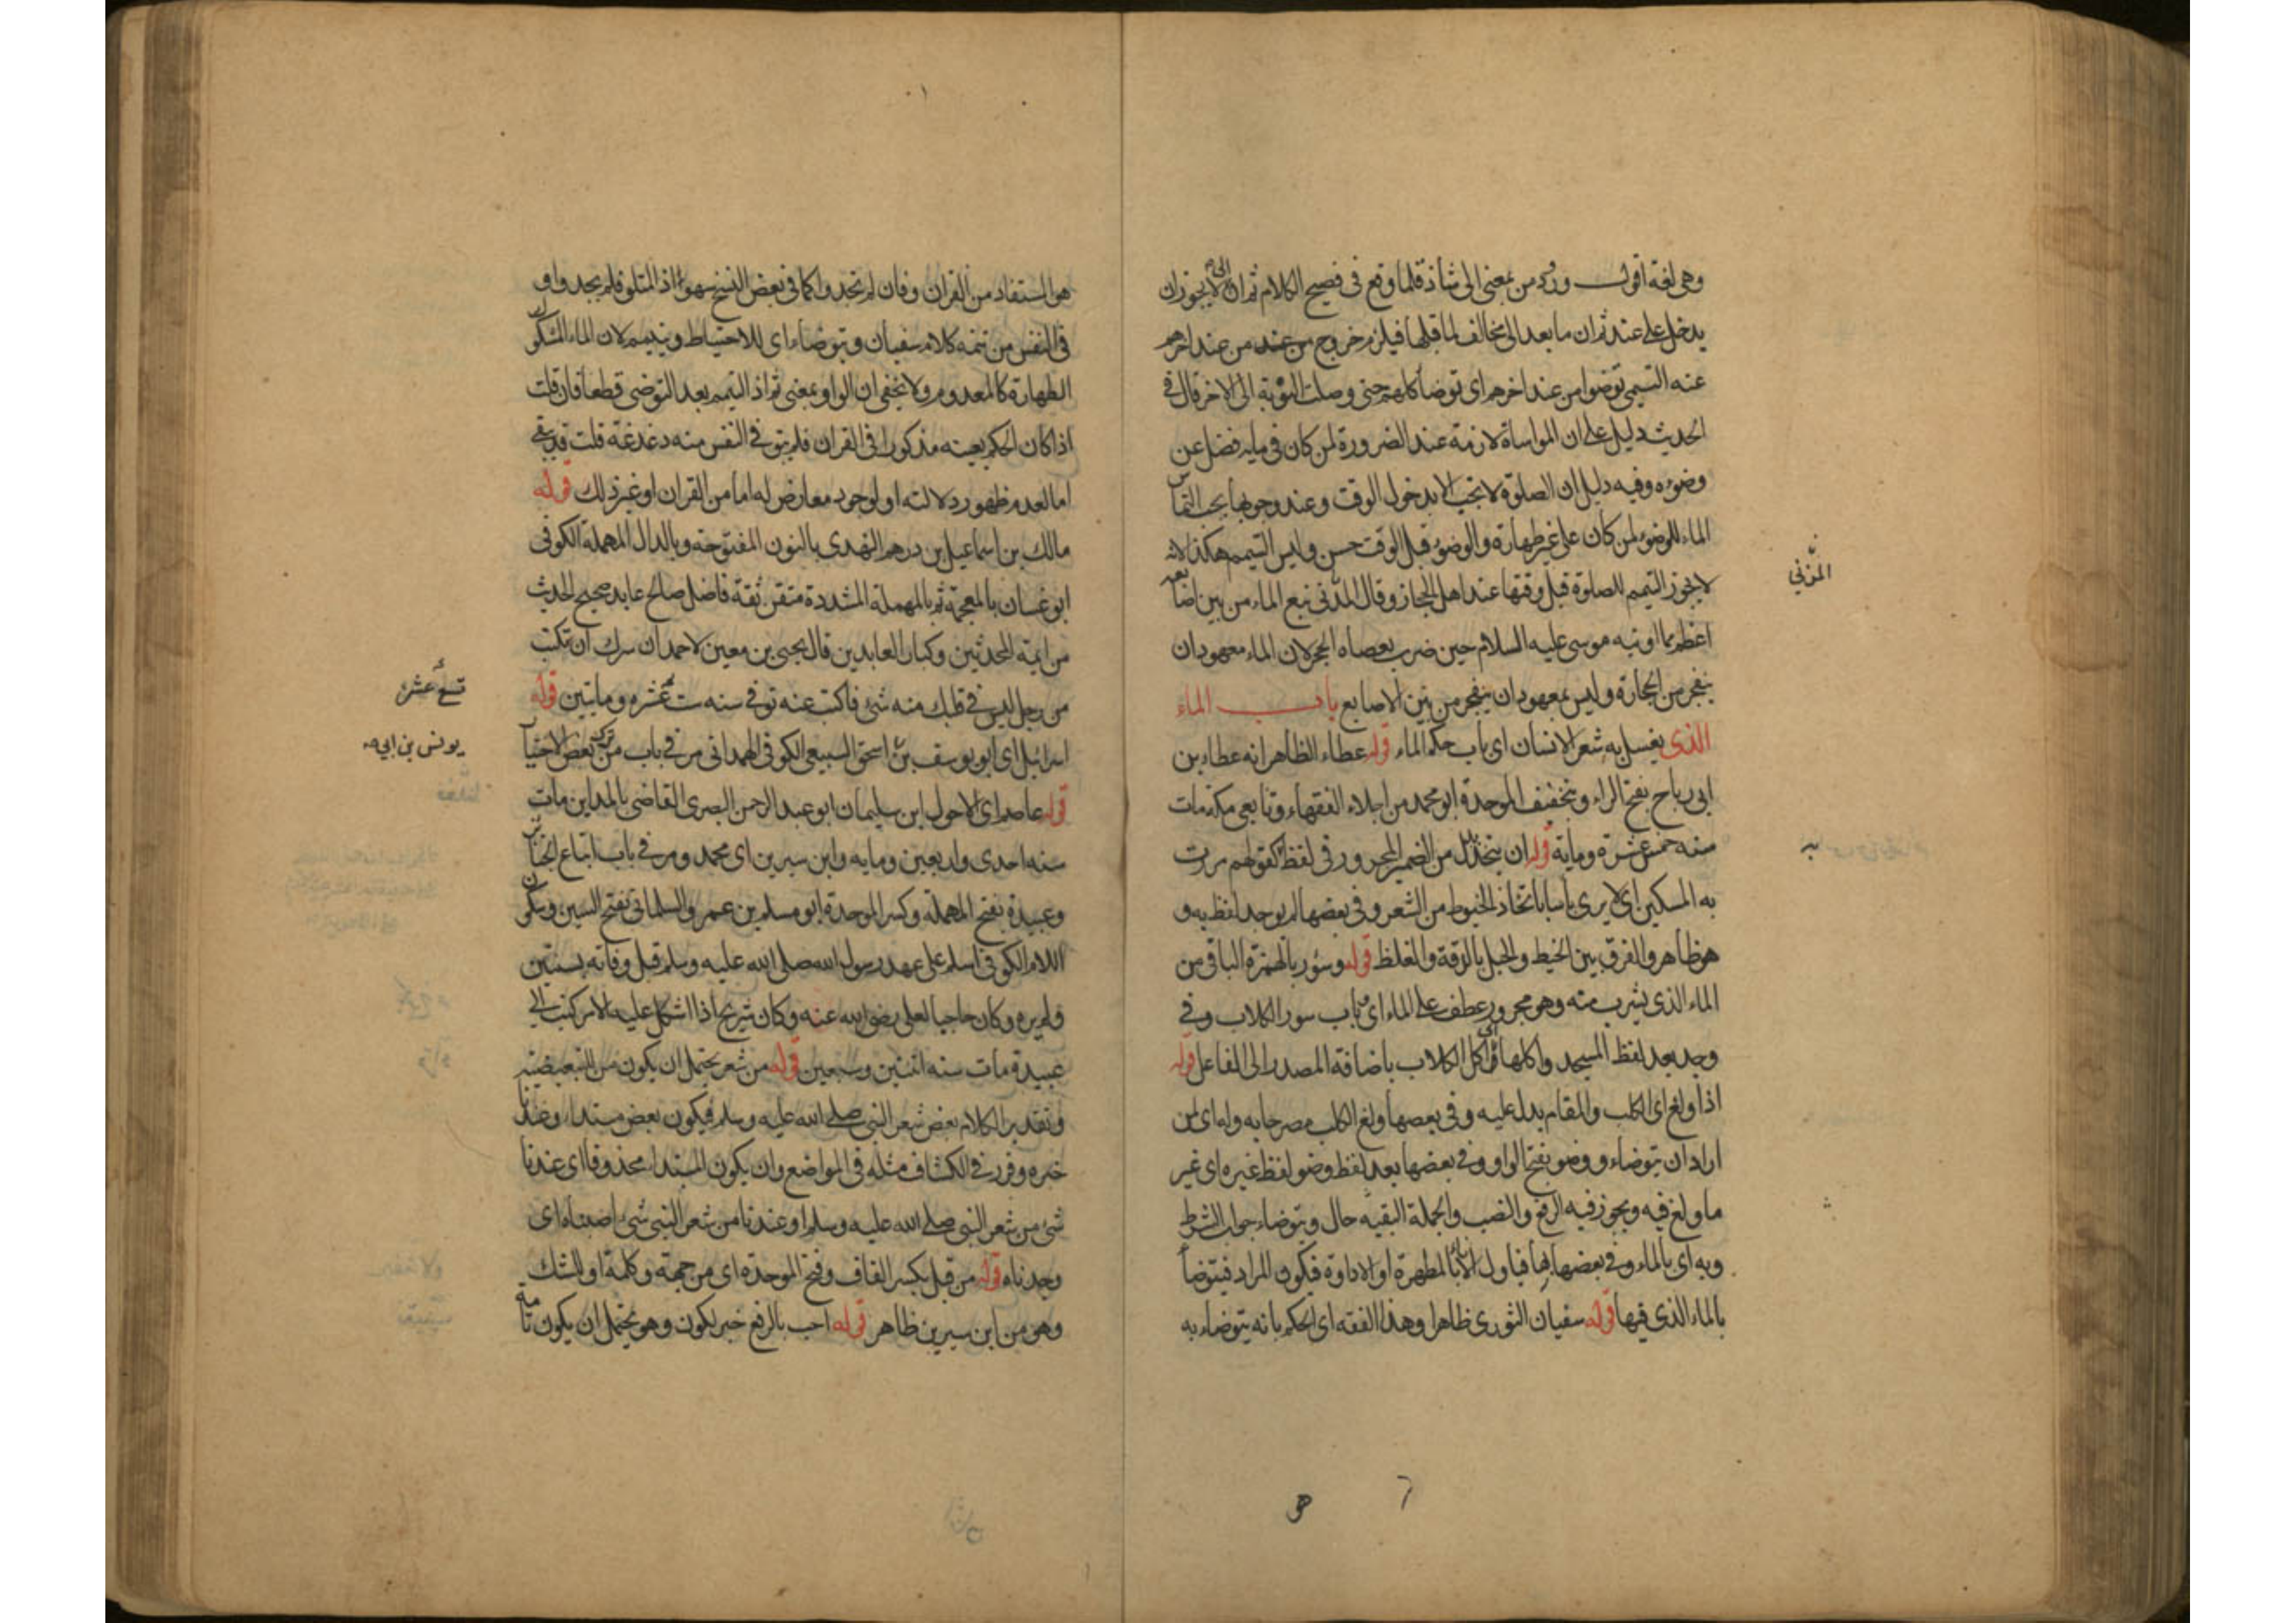 وهي لغة اقول ورود من بمعنى الى شاذ قلما وقع في فصيح الكلام ثم ان الى لا يجوز ان
يدخل على عند ثم ان ما بعد الى مخالف لما قبلها فيلزم خروج من عند من عند اخرهم
عنه التيمي توضوا من عند اخرهم اي توضا كلهم حتى وصلت النوبة الى الاخر قال في
الحديث دليل على ان المواساة لازمة عند الضرورة لمن كان في مايه فضل عن
وضوه وفيه دليل ان الصلوة لا تجب الا بدخول الوقت وعند وجوبها يجب التماس
الماء للوضو لمن كان على غير طهارة والوضو قبل الوقت حسن وليس التيمم هكذا لانه
لا يجوز التيمم للصلوة قبل وقتها عند اهل الحجاز وقال المزني نبع الماء من بين اصابعه
المزني
اعظم مما اوتيه موسى عليه السلام حين ضرب بعصاه الحجر لان الماء معهود ان
ينفجر من الحجارة وليس بمعهود ان ينفجر من بين الاصابع باب الماء
الذي يغسل به شعر الانسان اي باب حكم الماء قوله عطاء الظاهر انه عطاء بن
ابي رباح بفتح الراء وبتخفيف الموحدة ابو محمد من اجلاء الفقهاء وتابعي مكة مات
سنة خمس عشرة وماية قوله ان يتخذ بدل من الضمير المجرور في لفظ كقولهم مررت
به
به المسكين اي لا يرى باسا باتخاذ الخيوط من الشعر وفي بعضها لم يوجد لفظ به و
هو ظاهر والفرق بين الخيط والحبل بالرقة والغلظ قوله وسؤر بالهمزة الباقي من
الماء الذي يشرب منه وهو مجرور عطف على الماء اي باب سور الكلاب وفي
وجد بعد لفظ المسجد واكلها اي اكل الكلاب باضافة المصدر الى الفاعل قوله
اذا ولغ اي الكلب والمقام يدل عليه وفي بعضها ولغ الكلب مصرحا به وله اي لمن
اراد ان يتوضاء ووضو بفتح الواو وفي بعضها بعد لفظ وضو لفظ غيره اي غير
ما ولغ فيه ويجوز فيه الرفع والنصب والجملة المنفية حال ويتوضاء جواب الشرط
وبه اي بالماء وفي بعضها بها فياول الاناء بالمطهرة او الاداوة فيكون المراد فيتوضا
بالماء الذي فيها قوله سفيان الثوري ظاهرا وهذا الفقه اي الحكم بانه يتوضاء به
هو المستفاد من القران وفان لم تجدوا كما في بعض النسخ سهو اذ المتلو فلم تجدوا و
في النفس من تتمة كلام سفيان ويتوضاء اي للاحتياط ويتيمم لان الماء المشكوك
الطهارة كالمعدوم ولا يخفى ان الواو بمعنى ثم اذ التيمم بعد التوضي قطعا فان قلت
اذا كان الحكم بعينه مذكورا في القران فلم يبق في النفس منه دغدغة قلت قد يبقى
اما لعدم ظهور دلالته او لوجود معارض له اما من القران او غير ذلك قوله
مالك بن اسماعيل بن درهم النهدي بالنون المفتوحة وبالدال المهملة الكوفي
ابو غسان بالمعجمة ثم بالمهملة المشددة متقن ثقة فاضل صالح عابد صحيح الحديث
من ايمة المحدثين وكبار العابدين قال يحيى بن معين لاحمد ان سرك ان تكتب
من رجل ليس في قلبك منه شئ فاكتب عنه توفي سنه ست عشره وماتين قوله
تسع عشرة
اسرائيل اي ابو يوسف بن اسحق السبيعي الكوفي الهمداني مر في باب من ترك بعض الاختيار
يونس بن ابي
قوله عاصم اي الاحول ابن سليمان ابو عبد الرحمن البصري القاضي بالمداين مات
سنه احدى واربعين وماية وابن سيرين اي محمد ومر في باب اتباع الجنايز
وعبيدة بفتح المهملة وكسر الموحدة ابو مسلم بن عمرو السلماني بفتح السين وسكون
اللام الكوفي اسلم على عهد رسول الله صلى الله عليه وسلم قبل وفاته بسنتين
ولم يره وكان حاجبا لعلي رضي الله عنه وكان شريح اذا اشكل عليه الامر كتب الى
عبيدة مات سنه اثنتين وسبعين قوله من شعر يحتمل ان يكون من التبعيضية
وتقدير الكلام بعض شعر النبي صلى الله عليه وسلم فيكون بعض مبتدا وعندنا
خبره وقرر في الكشاف مثله في المواضع وان يكون المبتدا محذوفا اي عندنا
شئ من شعر النبي صلى الله عليه وسلم او عندنا من شعر النبي شئ اصبناه اي
وجدناه قوله من قبل بكسر القاف وفتح الموحدة اي من جهة وكلمة او للشك
وهو من ابن سيرين ظاهر قوله احب بالرفع خبر لكون وهو يحتمل ان يكون تامة